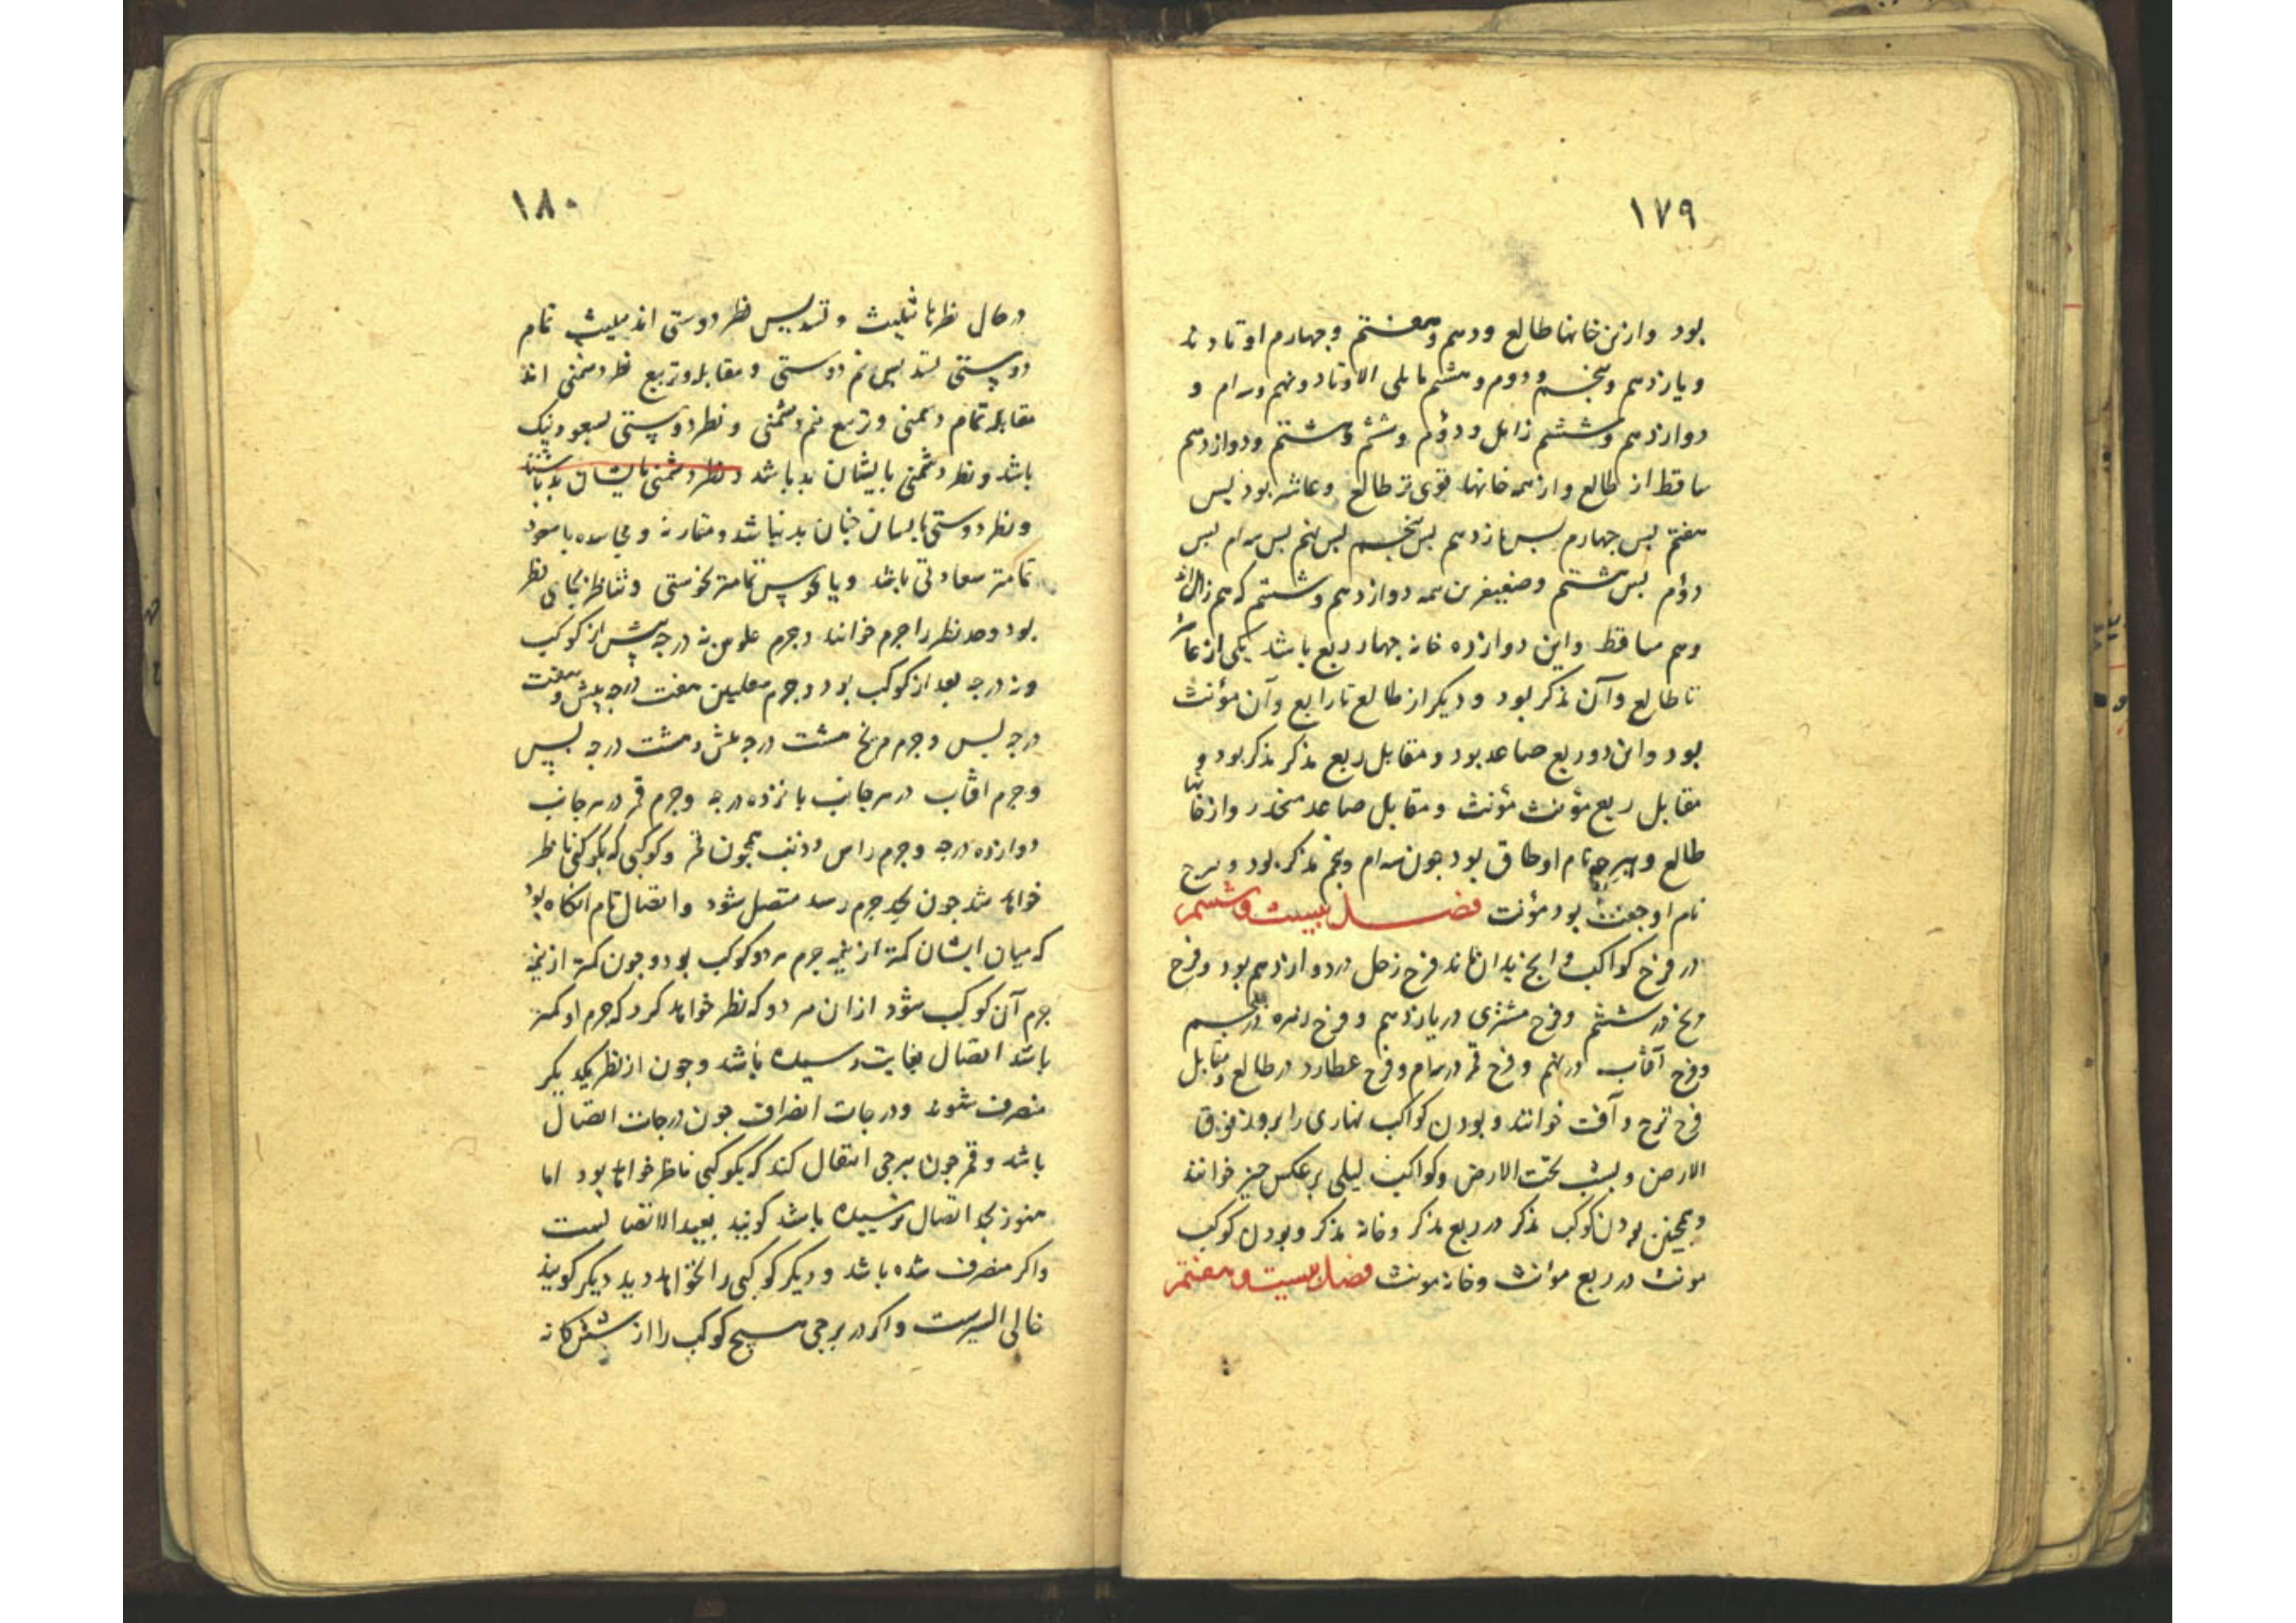 ١٧٩
بود وازین خانها طالع ودهم وهفتم وچهارم اوتادند
ویازدهم وپنجم ودوم وهشتم مایلی الاوتاد ونهم وسوام و
دوازدهم وششم زایل ودوم وششم وهشتم ودوازدهم
ساقط از طالع وازهمه خانها قوی تر طالع وعاشر بود پس
هفتم پس چهارم پس یازدهم پس پنجم پس نهم پس سوام پس
دوم پس هشتم وضعیفرین همه دوازدهم وششم که هم زایل اند
وهم ساقط واین دوازده خانه چهار ربع باشد یکی از عاشر
تا طالع وآن مذکر بود ودیکر از طالع تا رابع وآن مؤنث
بود واین دو ربع صاعد بود ومقابل ربع مذکر مذکر بود و
مقابل ربع مؤنث مؤنث ومقابل صاعد منحدر واز خانها
طالع وهرچه نام او طاق بود چون سوام وپنجم مذکر بود وهرچ
نام او جفت بود مؤنث فصل بیست وششم
در فرح کواکب وآنچ بدان ماند فرح زحل در دوازدهم بود وفرح
مریخ در ششم وفرح مشتری در یازدهم وفرح زهره در پنجم
وفرح آفتاب در نهم وفرح قمر در سوام وفرح عطارد در طالع ومقابل
فرح ترح وآفت خوانند وبودن کواکب نهاری را بروز فوق
الارض وبشب تحت الارض وکواکب لیلی برعکس حیز خوانند
وهمچنین بودن کوکب مذکر در ربع مذکر وخانه مذکر وبودن کوکب
مونث در ربع مؤنث وخانه مونث فصل بیست وهفتم
١٨٠
در حال نظرها تثلیث وتسدیس نظر دوستی اند تثلیث تمام
دوستی تسدیس نیم دوستی ومقابله وتربیع نظر دشمنی اند
مقابله تمام دشمنی وتربیع نیم دشمنی ونظر دوستی بسعود نیک
باشد ونظر دشمنی بایشان بد باشد ونظر دشمنی بایشان بد باشد
ونظر دوستی بایشان چنان بد نباشد ومقارنه ومجاسده با سعود
تمامتر سعادتی باشد وبا نحوس تمامتر نحوستی وتناظر بجای نظر
بود وحد نظر را جرم خوانند وجرم علویین نه درجه پیش از کوکب
ونه درجه بعد از کوکب بود وجرم سفلیین هفت درجه پیش وهفت
درجه پس وجرم مریخ هشت درجه پیش وهشت درجه پس
وجرم افتاب در هر جانب پانزده درجه وجرم قمر در هر جانب
دوازده درجه وجرم راس وذنب همچون قمر وکوکبی که بکوکبی ناظر
خواهد شد چون بحد جرم رسد متصل شود واتصال تام انکاه بود
که میان ایشان کمتر از نیمه جرم هر دو کوکب بود وچون کمتر از نیمه
جرم آن کوکب شود ازان هر دو که نظر خواهد کرد که جرم او کمتر
باشد اتصال بغایت رسیده باشد وچون از نظر یکدیکر
منصرف شوند ودرجات انصراف چون درجات اتصال
باشد وقمر چون ببرجی انتقال کند که بکوکبی ناظر خواهد بود اما
هنوز بحد اتصال نرسیده باشد کویند بعید الاتصالست
واکر منصرف شده باشد ودیکر کوکبی را نخواهد دید دیکر کویند
خالی السیرست واکر در برجی هیچ کوکب را از شش کانه